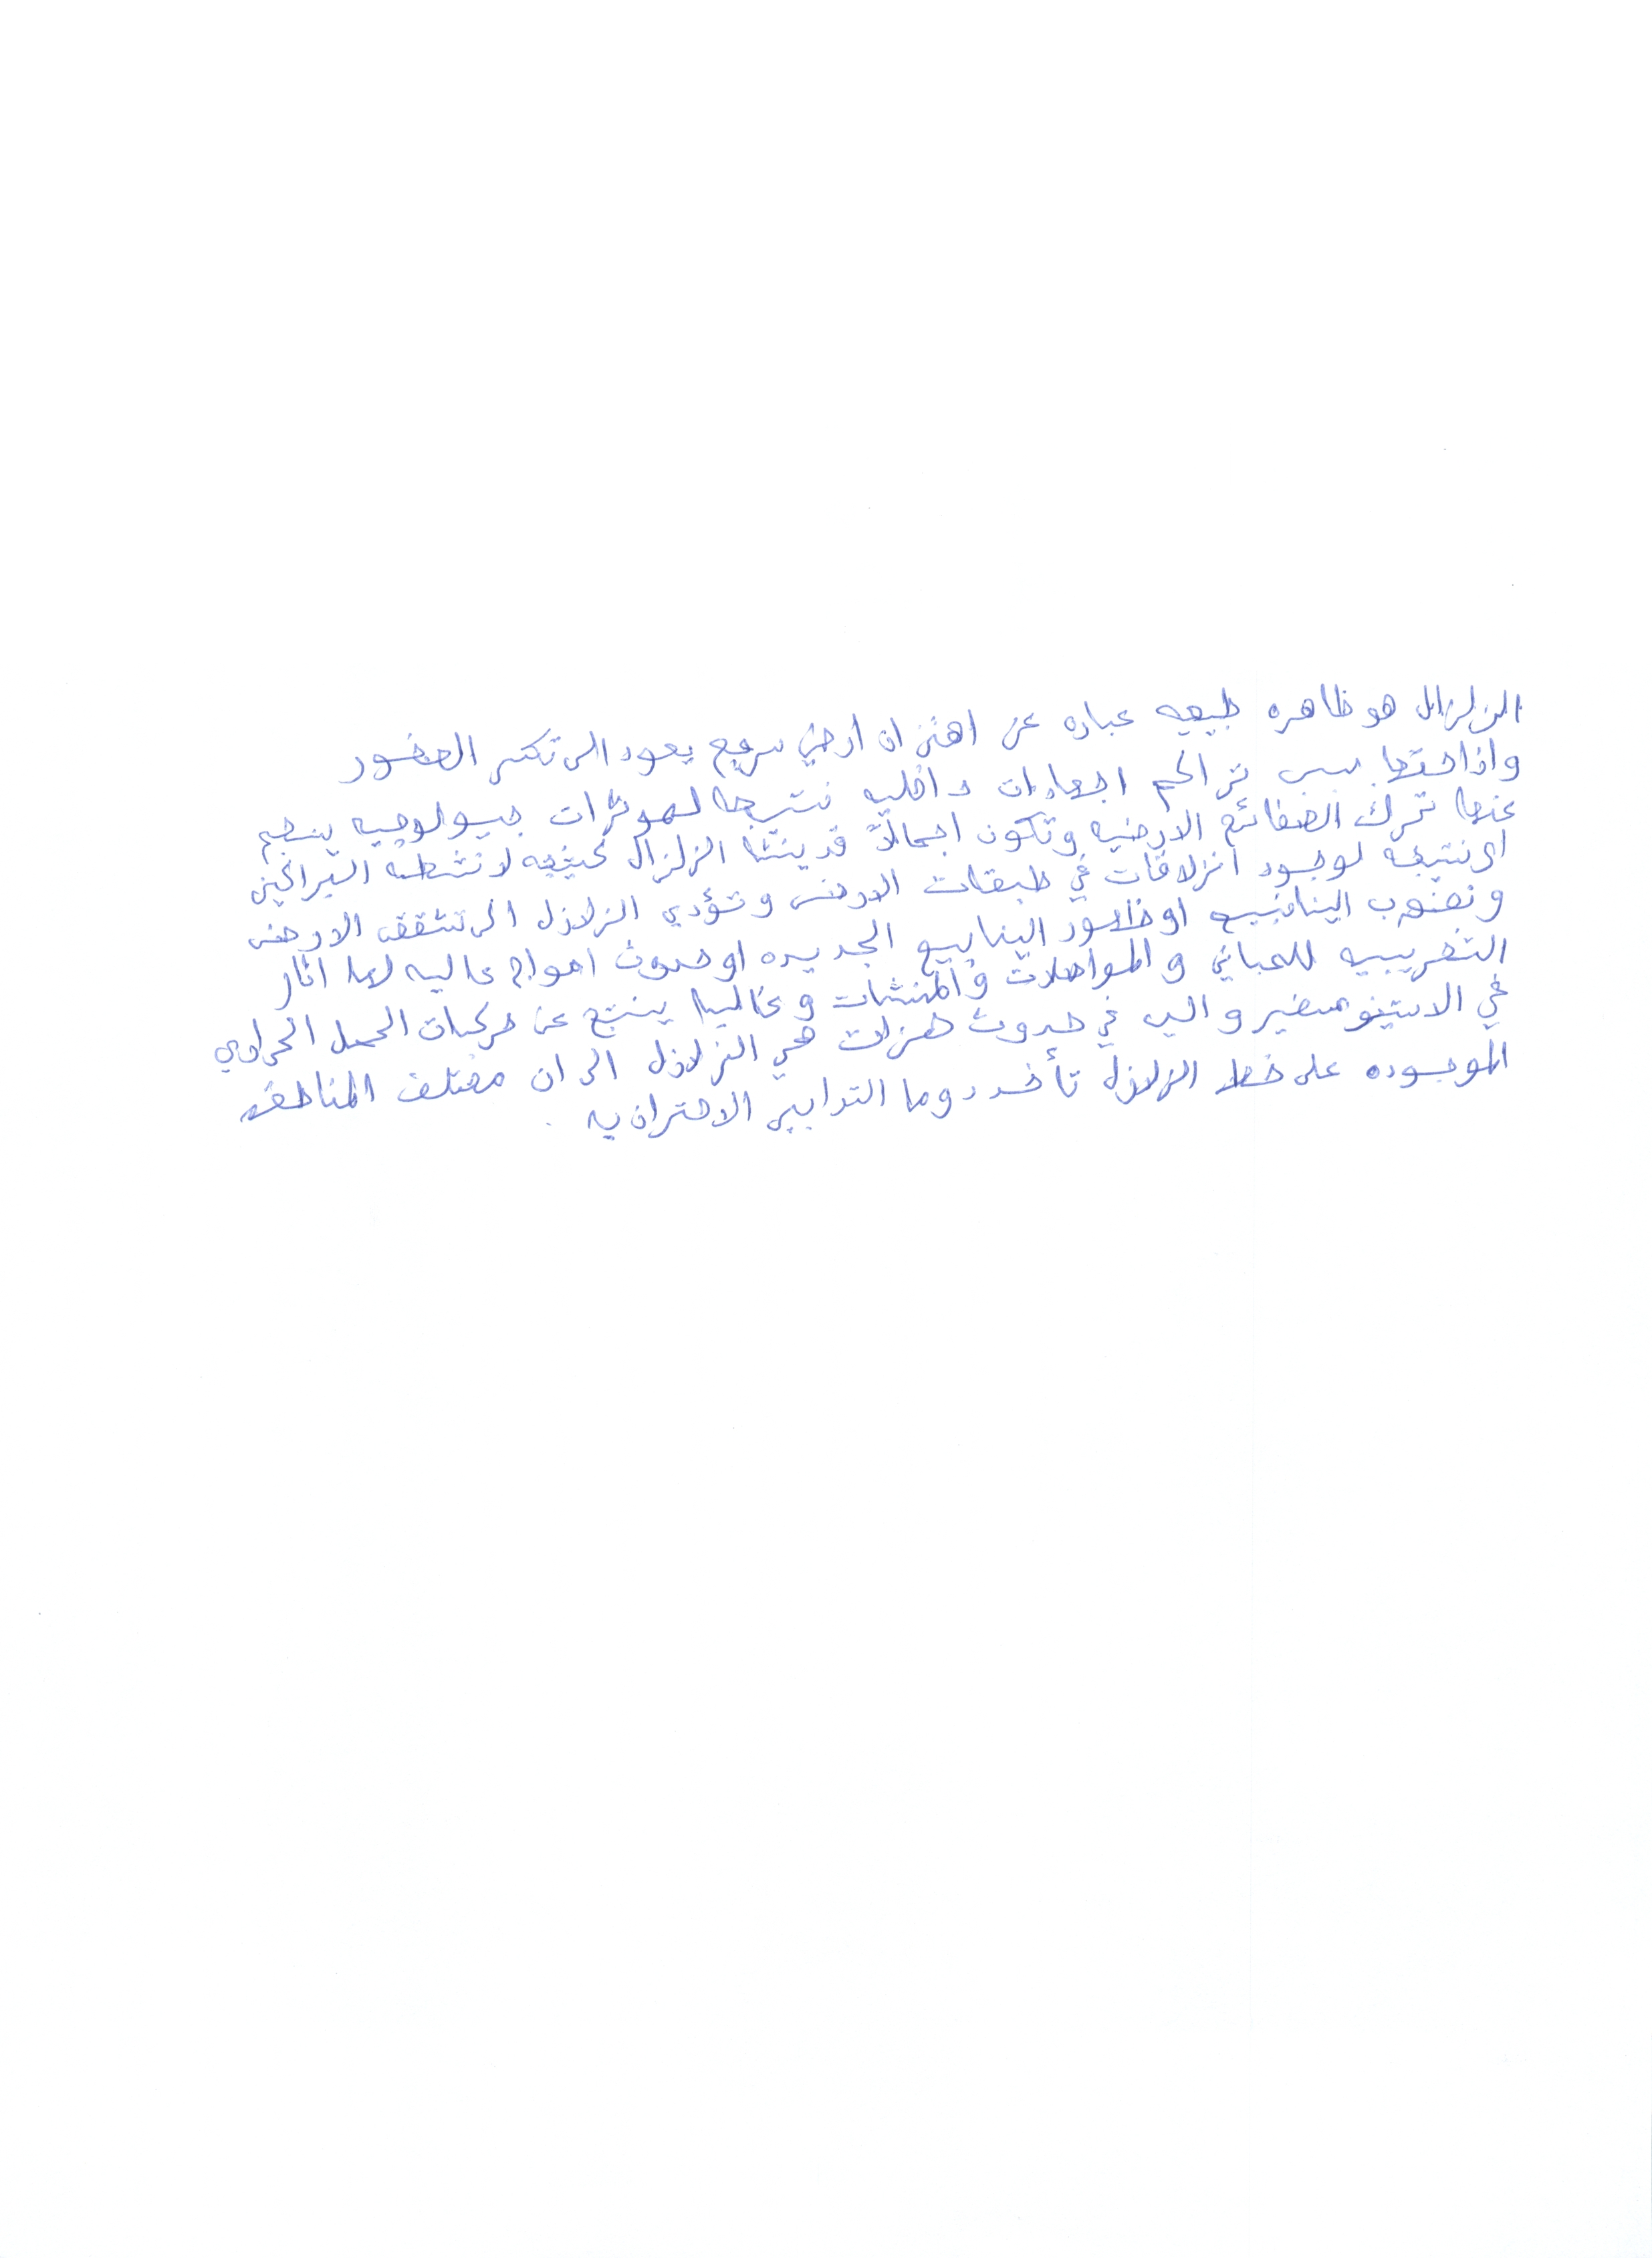 الزلزال هو ظاهره طبيعيه عباره عن اهتزازان أرضي سريع يعود الى تكسر الصخور
وازاحتها بسبب تراكم اجهادات داخليه نتيجه لمؤثرات جيولوجيه ينجم
عنها تحرك الصفائح الارضيه وتكون اجمالاً قد ينشا الزلزال كنتيجه لانشطه البراكين
او نتيجه لوجود انزلاقات في طبقات الارض وتؤدي الزلازل الى تشقق الارض
ونضوب الينابيع او ظهور الينابيع الجديده او حدوث امواج عاليه لها اثار
التخريبيه للمباني والمواصلات والمنشات وغالبا ينتج عن حركات الحمل الحراري
في الاستينوسفير والتي في حدوث هزات هي الزلازل الى ان مختلف المناطق
الموجوده على خط الزلازل تأخد دوما التدابير الاحترازيه .